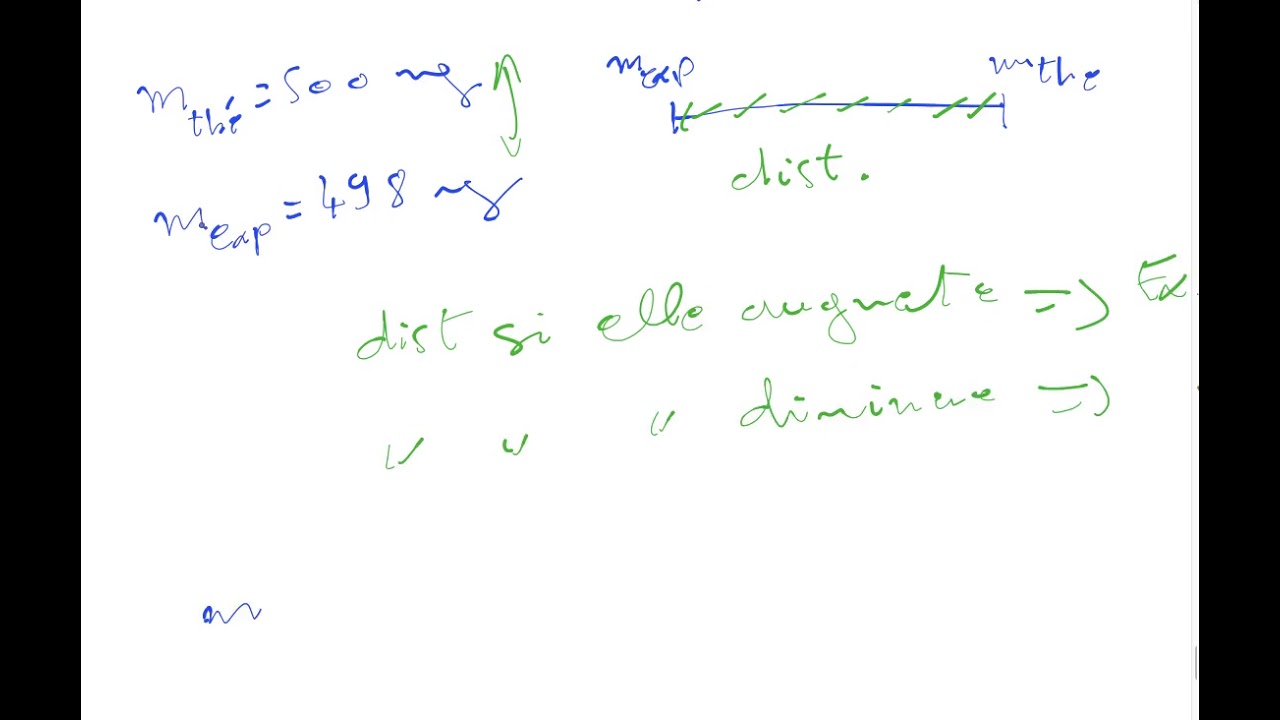 m thé = 500 mg
m exp = 498 mg
m exp m the
dist.
dist si elle augmate => Ex
" " " diminue =>
m